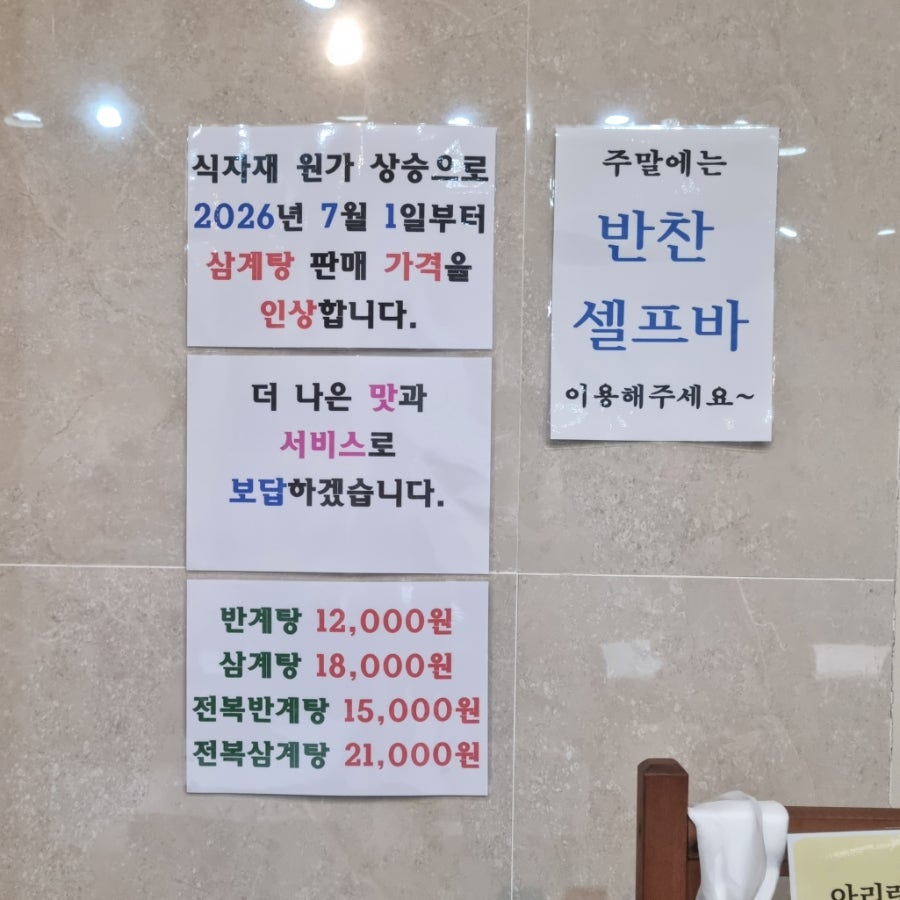 식자재 원가 상승으로
2026년 7월 1일부터
삼계탕 판매 가격을
인상합니다.
더 나은 맛과
서비스로
보답하겠습니다.
반계탕 12,000원
삼계탕 18,000원
전복반계탕 15,000원
전복삼계탕 21,000원
주말에는
반찬
셀프바
이용해주세요~